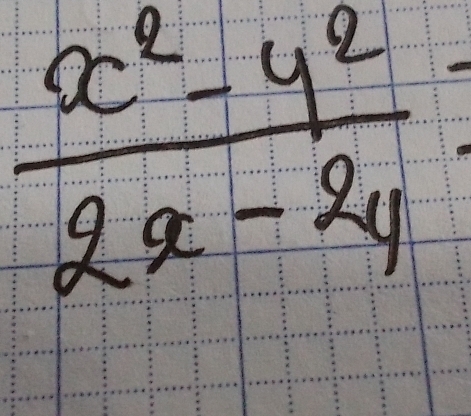 x² - y²
2x - 2y